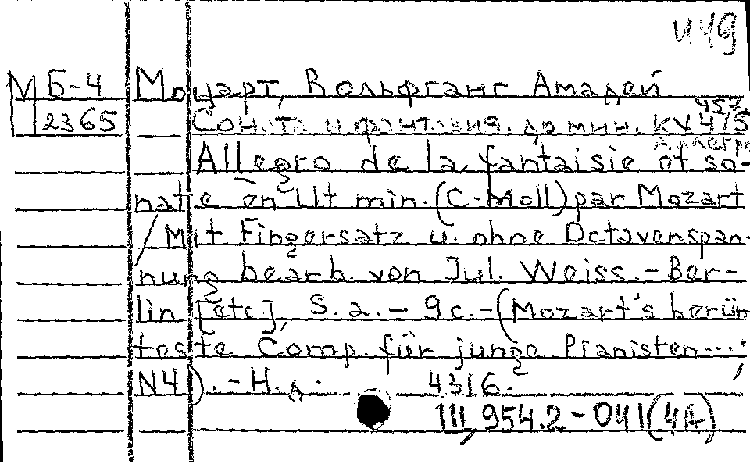 И49
М Б-4 Моцарт, Вольфганг Амадей
2365 Соната и фантазия, до мин. KV 457, 475
Allegro de la fantaisie et so-
nate en Ut min. (C-Moll) par Mozart
/ Mit Fingersatz u. ohne Octavenspan-
nung bearb. von Jul. Weiss. - Ber-
lin [etc.], S.a. - 9c. - (Mozart's berüm
teste Comp. für junge Pianisten...;
N4). - Н.д. 4316.
III, 954.2-041(4A)